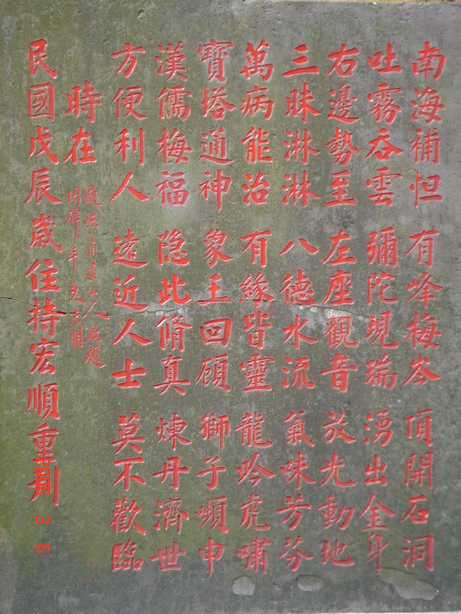 南海補怛 有峰梅岑 頂開石洞
吐霧吞雲 彌陀現瑞 湧出金身
右邊勢至 左座觀音 放光動地
三昧淋淋 八德水流 氣味芳芬
萬病能治 有緣皆靈 龍吟虎嘯
寶塔通神 象王回顧 獅子嚬申
漢儒梅福 隐此脩真 煉丹濟世
方便利人 遠近人士 莫不歡臨
時在
民國戊辰歲住持宏順重刊